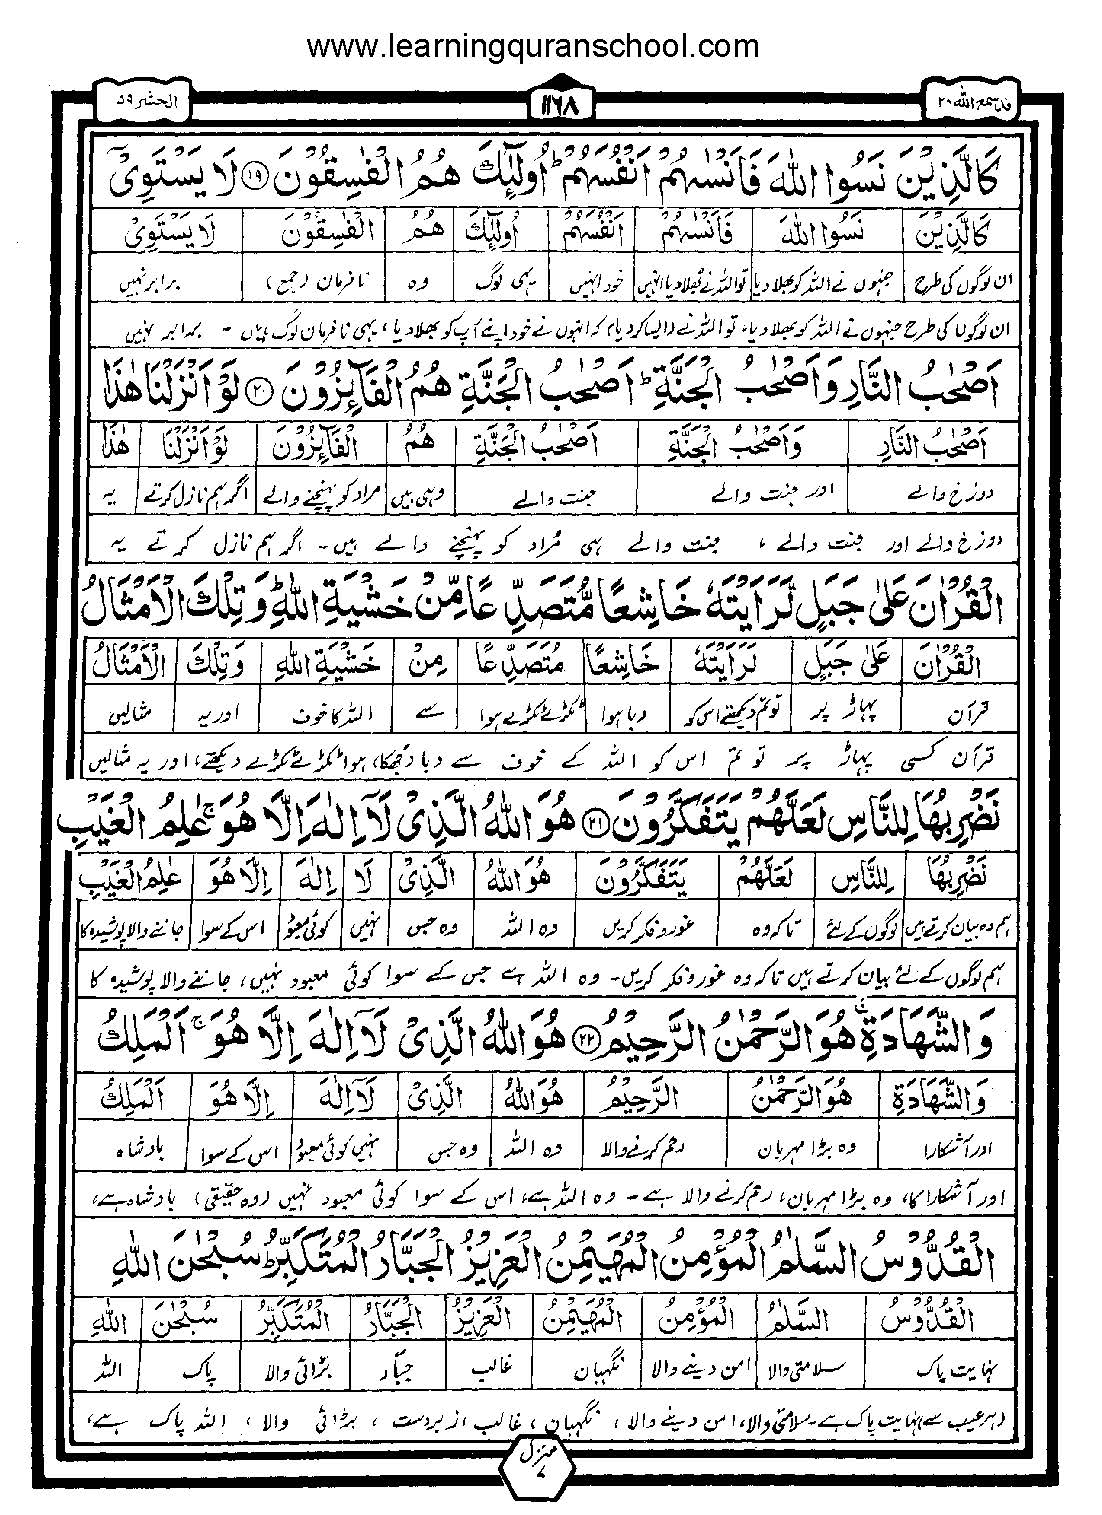 www.learningquranschool.com
قد سمع الله ۲۸
۱۱۶۸
الحشر ۵۹
كَالَّذِيْنَ نَسُوا اللّٰهَ فَاَنْسٰىهُمْ اَنْفُسَهُمْ ؕ اُولٰٓئِكَ هُمُ الْفٰسِقُوْنَ ۱۹ لَا يَسْتَوِيْٓ
كَالَّذِيْنَ نَسُوا اللّٰهَ فَاَنْسٰىهُمْ اَنْفُسَهُمْ اُولٰٓئِكَ هُمُ الْفٰسِقُوْنَ لَا يَسْتَوِيْٓ
ان لوگوں کی طرح جنہوں نے اللہ کو بھلا دیا تو اللہ نے بھلا دیا انہیں خود انہیں یہی لوگ وہ نافرمان (جمع) برابر نہیں
ان لوگوں کی طرح جنہوں نے اللہ کو بھلا دیا، تو اللہ نے ایسا کر دیا کہ انہوں نے خود اپنے آپ کو بھلا دیا، یہی نافرمان لوگ ہیں - برابر نہیں
اَصْحٰبُ النَّارِ وَاَصْحٰبُ الْجَنَّةِ ؕ اَصْحٰبُ الْجَنَّةِ هُمُ الْفَآئِزُوْنَ ۲۰ لَوْ اَنْزَلْنَا هٰذَا
اَصْحٰبُ النَّارِ وَاَصْحٰبُ الْجَنَّةِ اَصْحٰبُ الْجَنَّةِ هُمُ الْفَآئِزُوْنَ لَوْ اَنْزَلْنَا هٰذَا
دوزخ والے اور جنت والے جنت والے وہی ہیں مراد کو پہنچنے والے اگر ہم نازل کرتے یہ
دوزخ والے اور جنت والے، جنت والے ہی مُراد کو پہنچنے والے ہیں - اگر ہم نازل کرتے یہ
الْقُرْاٰنَ عَلٰى جَبَلٍ لَّرَاَيْتَهٗ خَاشِعًا مُّتَصَدِّعًا مِّنْ خَشْيَةِ اللّٰهِ ؕ وَتِلْكَ الْاَمْثَالُ
الْقُرْاٰنَ عَلٰى جَبَلٍ لَرَاَيْتَهٗ خَاشِعًا مُتَصَدِّعًا مِنْ خَشْيَةِ اللّٰهِ وَتِلْكَ الْاَمْثَالُ
قرآن پہاڑ پر تو تم دیکھتے اس کو دبا ہوا ٹکڑے ٹکڑے ہوا سے اللہ کا خوف اور یہ مثالیں
قرآن کسی پہاڑ پر تو تم اس کو اللہ کے خوف سے دبا (جھکا) ہوا ٹکڑے ٹکڑے دیکھتے، اور یہ مثالیں
نَضْرِبُهَا لِلنَّاسِ لَعَلَّهُمْ يَتَفَكَّرُوْنَ ۲۱ هُوَ اللّٰهُ الَّذِيْ لَآ اِلٰهَ اِلَّا هُوَ ۚ عٰلِمُ الْغَيْبِ
نَضْرِبُهَا لِلنَّاسِ لَعَلَّهُمْ يَتَفَكَّرُوْنَ هُوَ اللّٰهُ الَّذِيْ لَا اِلٰهَ اِلَّا هُوَ عٰلِمُ الْغَيْبِ
ہم وہ بیان کرتے ہیں لوگوں کے لئے تاکہ وہ غور و فکر کریں وہ اللہ وہ جس نہیں کوئی معبود اس کے سوا جاننے والا پوشیدہ کا
ہم لوگوں کے لئے بیان کرتے ہیں تاکہ وہ غور و فکر کریں - وہ اللہ ہے جس کے سوا کوئی معبود نہیں، جاننے والا پوشیدہ کا
وَالشَّهَادَةِ ۚ هُوَ الرَّحْمٰنُ الرَّحِيْمُ ۲۲ هُوَ اللّٰهُ الَّذِيْ لَآ اِلٰهَ اِلَّا هُوَ ۚ اَلْمَلِكُ
وَالشَّهَادَةِ هُوَ الرَّحْمٰنُ الرَّحِيْمُ هُوَ اللّٰهُ الَّذِيْ لَآ اِلٰهَ اِلَّا هُوَ اَلْمَلِكُ
اور آشکارا وہ بڑا مہربان رحم کرنے والا وہ اللہ وہ جس نہیں کوئی معبود اس کے سوا بادشاہ
اور آشکارا کا، وہ بڑا مہربان، رحم کرنے والا ہے - وہ اللہ ہے، اس کے سوا کوئی معبود نہیں (وہ حقیقی) بادشاہ ہے،
الْقُدُّوْسُ السَّلٰمُ الْمُؤْمِنُ الْمُهَيْمِنُ الْعَزِيْزُ الْجَبَّارُ الْمُتَكَبِّرُ ؕ سُبْحٰنَ اللّٰهِ
الْقُدُّوْسُ السَّلٰمُ الْمُؤْمِنُ الْمُهَيْمِنُ الْعَزِيْزُ الْجَبَّارُ الْمُتَكَبِّرُ سُبْحٰنَ اللّٰهِ
نہایت پاک سلامتی والا امن دینے والا نگہبان غالب جبّار بڑائی والا پاک اللہ
(ہر عیب سے) نہایت پاک ہے - سلامتی والا، امن دینے والا، نگہبان، غالب، زبردست، بڑائی والا، اللہ پاک ہے،
منزل ۷